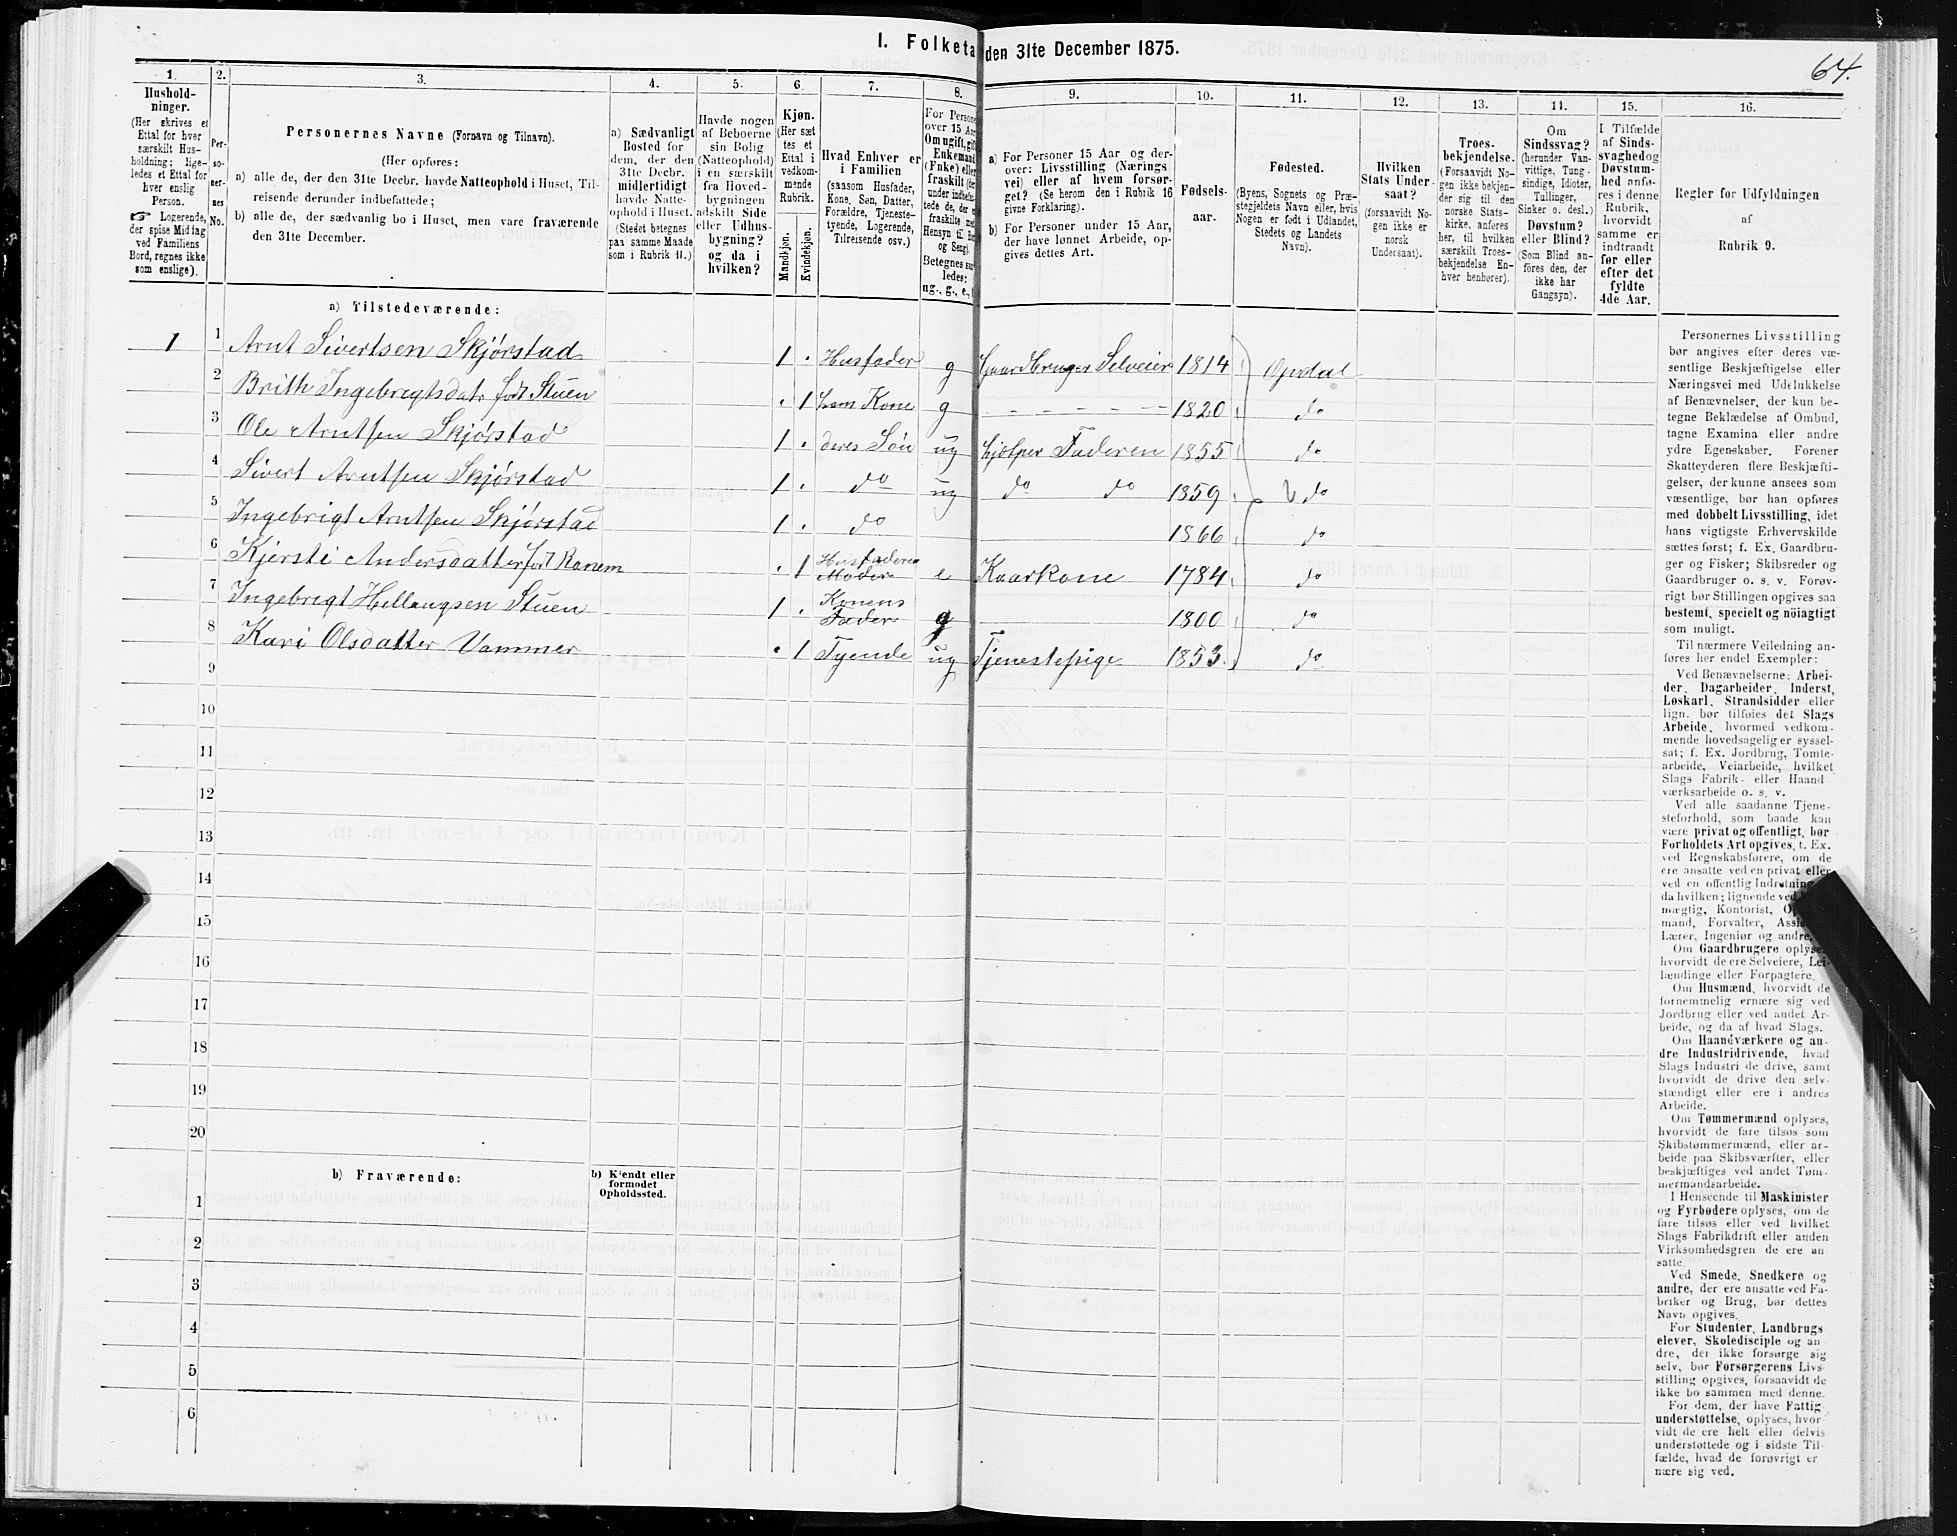 64.
I. Folketa den 31te December 1875.
1.
Hushold-
ninger.
(Her skrives et
Ettal for hver
særskilt Hus-
holdning; lige-
ledes et Ettal for
hver enslig
Person.
☞ Logerende,
der spise Middag
ved Familiens
Bord, regnes ikke
som enslige).
2.
Per-
so-
ner-
nes
No.
3.
Personernes Navne (Fornavn og Tilnavn).
(Her opføres:
a) alle de, der den 31te Decbr. havde Natteophold i Huset, Til-
reisende derunder indbefattede;
b) alle de, der sædvanlig bo i Huset, men vare fraværende
den 31te December.
4.
a) Sædvanligt
Bosted for
dem, der den
31te Decbr.
midlertidigt
havde Natte-
ophold i Huset.
(Stedet betegnes
paa samme Maade
som i Rubrik 11.)
5.
Havde nogen
af Beboerne
sin Bolig
(Natteophold)
i en særskilt
fra Hoved-
bygningen
adskilt Side
eller Udhus-
bygning?
og da i
hvilken?
6.
Kjøn.
(Her sæt
tes et
Ettal i
vedkom-
mende
Rubrik.
Mandkjøn.
Kvindekjøn.
7.
Hvad Enhver er
i Familien
(saasom Husfader,
Kone, Søn, Datter,
Forældre, Tjeneste-
tyende, Logerende,
Tilreisende osv.)
8.
For Persone
over 15 Aar
Om ugift, gift
Enkemand
(Fnke) elle
fraskilt (for
under indbefat-
tede de, der e
fraskilte med
Hensyn til Bo
og Seng).
Betegnes saa-
ledes:
ug., g., e.,
9.
a) For Personer 15 Aar og der-
over: Livsstilling (Nærings
vei) eller af hvem forsør-
get? (Se herom den i Rubrik 16
givne Forklaring).
b) For Personer under 15 Aar,
der have lønnet Arbeide, op-
gives dettes Art.
10.
Fødsels-
aar.
11.
Fødested.
(Byens, Sognets og Præ-
stegjeldets Navn eller, hvis
Nogen er født i Udlandet,
Stedets og Landets
Navn).
12.
Hvilken
Stats Under-
saat?
(forsaavidt No-
gen ikke er
norsk
Undersaat).
13.
Troes-
bekjendelse.
(Forsaavidt No-
gen ikke bekjen-
der sig til den
norske Stats-
kirke, anføres
her, til hvilken
særskilt Troes-
bekjendelse En-
hver henhører).
14.
Om
Sindssvag?
(herunder Van-
vittige, Tung-
sindige, Idioter,
Tullinger,
Sinker o. desl.)
Døvstum?
eller Blind?
(Som Blind an-
føres den, der
ikke har
Gangsyn).
15.
I Tilfælde
af Sinds-
svaghed og
Døvstum-
hed anfø-
res i denne
Rubrik,
hvorvidt
samme er
indtraadt
før eller
efter det
fyldte
4de Aar.
16.
Regler før Udfyldningen
af
Rubrik 9.
a) Tilstedeværende:
1 1 Arnt Sivertsen Skjørstad 1 · Husfader g Gaardbruger Selveier 1814 Opdal
2 Brith Ingebregtsdatr født Stuen · 1 hans Kone g - - - - - - 1820 do
3 Ole Arntsen Skjørstad 1 · deres Søn ug hjelper Faderen 1855 do
4 Sivert Arntsen Skjørstad 1 · do ug do do 1859 do
5 Ingebrigt Arntsen Skjørstad 1 · do 1866 do
6 Kjersti Andersdatter født Ranem · 1 Husfaderens Moder e Kaarkone 1784 do
7 Ingebrigt Hellaugsen Stuen 1 · Konens Fader g 1800 do
8 Kari Olsdatter Vammer · 1 Tyende ug Tjenestepige 1853 do
9
10
11
12
13
14
15
16
17
18
19
20
b) Fraværende:
b) Kjendt eller
formodet
Opholdssted.
1
2
3
4
5
6
Personernes Livsstilling
bør angives efter deres væ-
sentlige Beskjæftigelse eller
Næringsvei med Udelukkelse
af Benævnelser, der kun be-
tegne Beklædelse af Ombud,
tagne Examina eller andre
ydre Egenskaber. Forener
Skatteyderen flere Beskjæfti-
gelser, der kunne ansees som
væsentlige, bør han opføres
med dobbelt Livsstilling, idet
hans vigtigste Erhvervskilde
sættes først; f. Ex. Gaardbru-
ger og Fisker; Skibsreder og
Gaardbruger o. s. v. Forøv-
rigt bør Stillingen opgives saa
bestemt, specielt og nøiagtigt
som muligt.
Til nærmere Veiledning an-
føres her endel Exempler:
Ved Benævnelserne: Arbei-
der, Dagarbeider, Inderst,
Løskarl, Strandsidder eller
lign. bør tilføies det Slags
Arbeide, hvormed vedkom-
mende hovedsagelig er syssel-
sat; f. Ex. Jordbrug, Tomte-
arbeide, Veiarbeide, hvilket
Slags Fabrik- eller Haand-
værksarbeide o. s. v.
Ved alle saadanne Tjene-
steforhold, som baade kan
være privat og offentligt, bør
Forholdets Art opgives, t. Ex.
ved Regnskabsførere, om de
ere ansatte ved en privat eller
ved en offentlig Indretning
da hvilken; lignende ved
mægtig, Kontorist, Op
mand, Forvalter, Assi
Lærer, Ingeniør og andre.
Om Gaardbrugere oplyse
hvorvidt de ere Selveiere, Lei-
lændinge eller Forpagtere.
Om Husmænd, hvorvidt de
fornemmelig ernære sig ved
Jordbrug eller ved andet Ar-
beide, og da af hvad Slags.
Om Haandværkere og an-
dre Industridrivende, hvad
Slags Industri de drive, samt
hvorvidt de drive den selv-
stændigt eller ere i andres
Arbeide.
Om Tømmermænd oplyses,
hvorvidt de fare tilsøs som
Skibstømmermænd, eller ar-
beide paa Skibsværfter, eller
beskjæftiges ved andet Tøm-
mermandsarbeide.
I Henseende til Maskinister
og Fyrbødere oplyses, om de
fare tilsøs eller ved hvilket
Slags Fabrikdrift eller anden
Virksomhedsgren de ere an-
satte.
Ved Smede, Snedkere og
andre, der ere ansatte ved Fa-
briker og Brug, bør dettes
Navn opgives.
For Studenter, Landbrugs
elever, Skoledisciple og an-
dre, der ikke forsørge sig
selv, bør Forsørgerens Livs-
stilling opgives, forsaavidt de
ikke bo sammen med denne.
For dem, der have Fattig-
understøttelse, oplyses, hvor-
vidt de ere helt eller delvis
understøttede og i sidste Til-
fælde, hvad de forøvrigt er
nære sig ved.